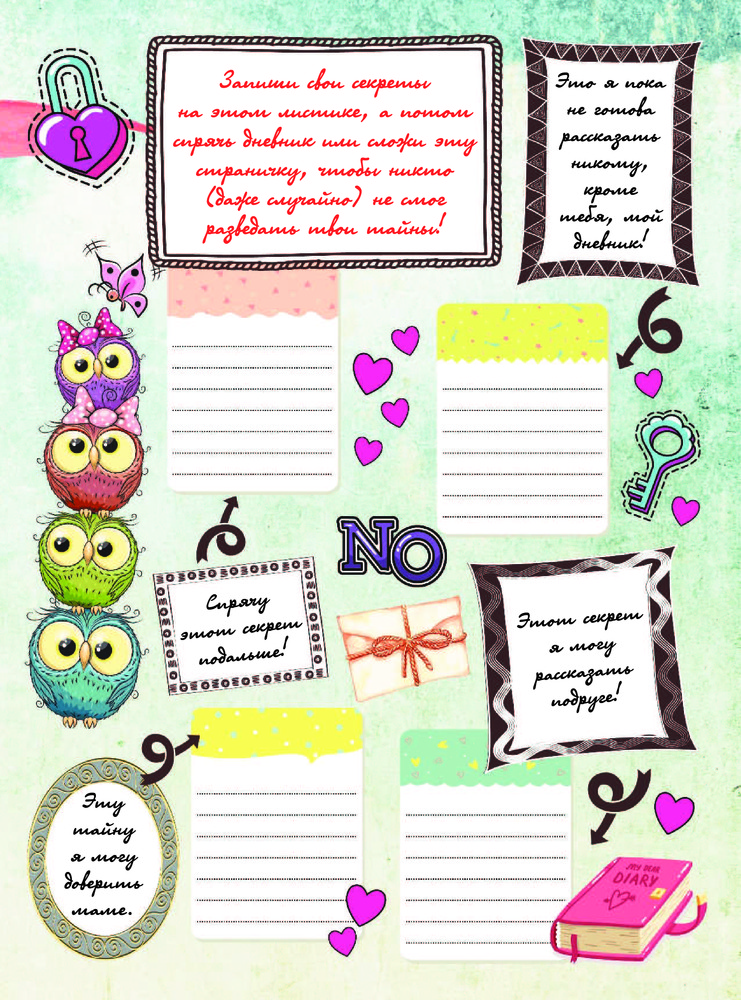 Запиши свои секреты
на этом листике, а потом
спрячь дневник или сложи эту
страничку, чтобы никто
(даже случайно) не смог
разведать твои тайны!
Это я пока
не готова
рассказать
никому,
кроме
тебя, мой
дневник!
NO
Спрячу
этот секрет
подальше!
Этот секрет
я могу
рассказать
подруге!
Эту
тайну
я могу
доверить
маме.
MY DEAR
DIARY